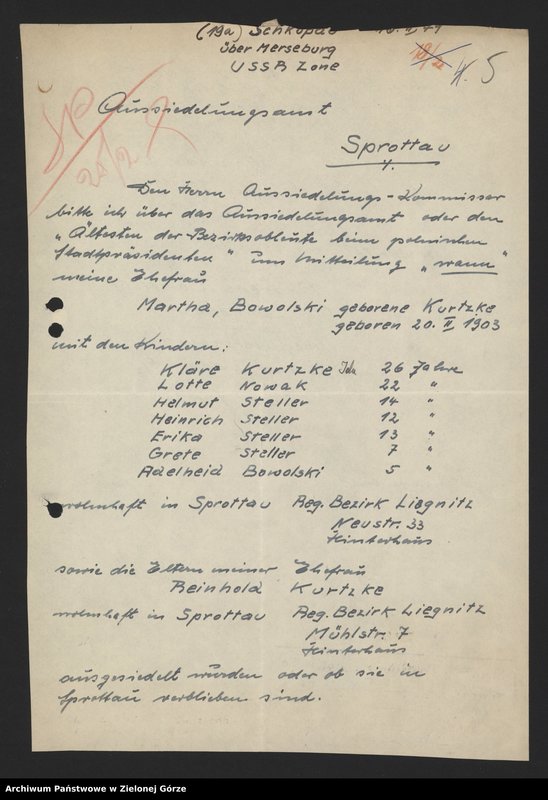 (19a) Schkopau
über Merseburg
USSR Zone
5
Aussiedelungsamt
Sprottau
Den Herrn Aussiedelungs-Kommissar
bitte ich über das Aussiedelungsamt oder den
"Ältesten der Bezirksobleute beim polnischen
Stadtpräsidenten" um Mitteilung "wann"
meine Ehefrau
Martha, Bowolski geborene Kurtzke
geboren 20. II 1903
mit den Kindern:
Kläre Kurtzke 26 Jahre
Lotte Nowak 22 "
Helmut Steller 14 "
Heinrich Steller 12 "
Erika Steller 13 "
Grete Steller 7 "
Adelheid Bowolski 5 "
wohnhaft in Sprottau Reg. Bezirk Liegnitz
Neustr. 33
Hinterhaus
sowie die Eltern meiner Ehefrau
Reinhold Kurtzke
wohnhaft in Sprottau Reg. Bezirk Liegnitz
Mühlstr. 7
Hinterhaus
ausgesiedelt wurden oder ob sie in
Sprottau verblieben sind.
Archiwum Państwowe w Zielonej Górze